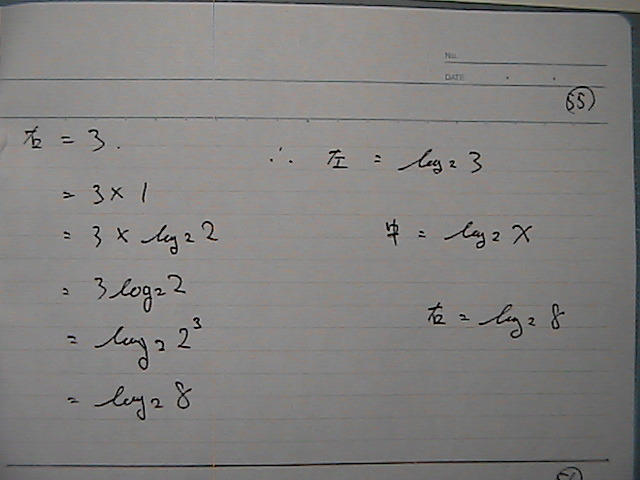 No.
DATE
55
右 = 3.
= 3 × 1
= 3 × log₂ 2
= 3 log₂ 2
= log₂ 2³
= log₂ 8
∴ 左 = log₂ 3
中 = log₂ x
右 = log₂ 8